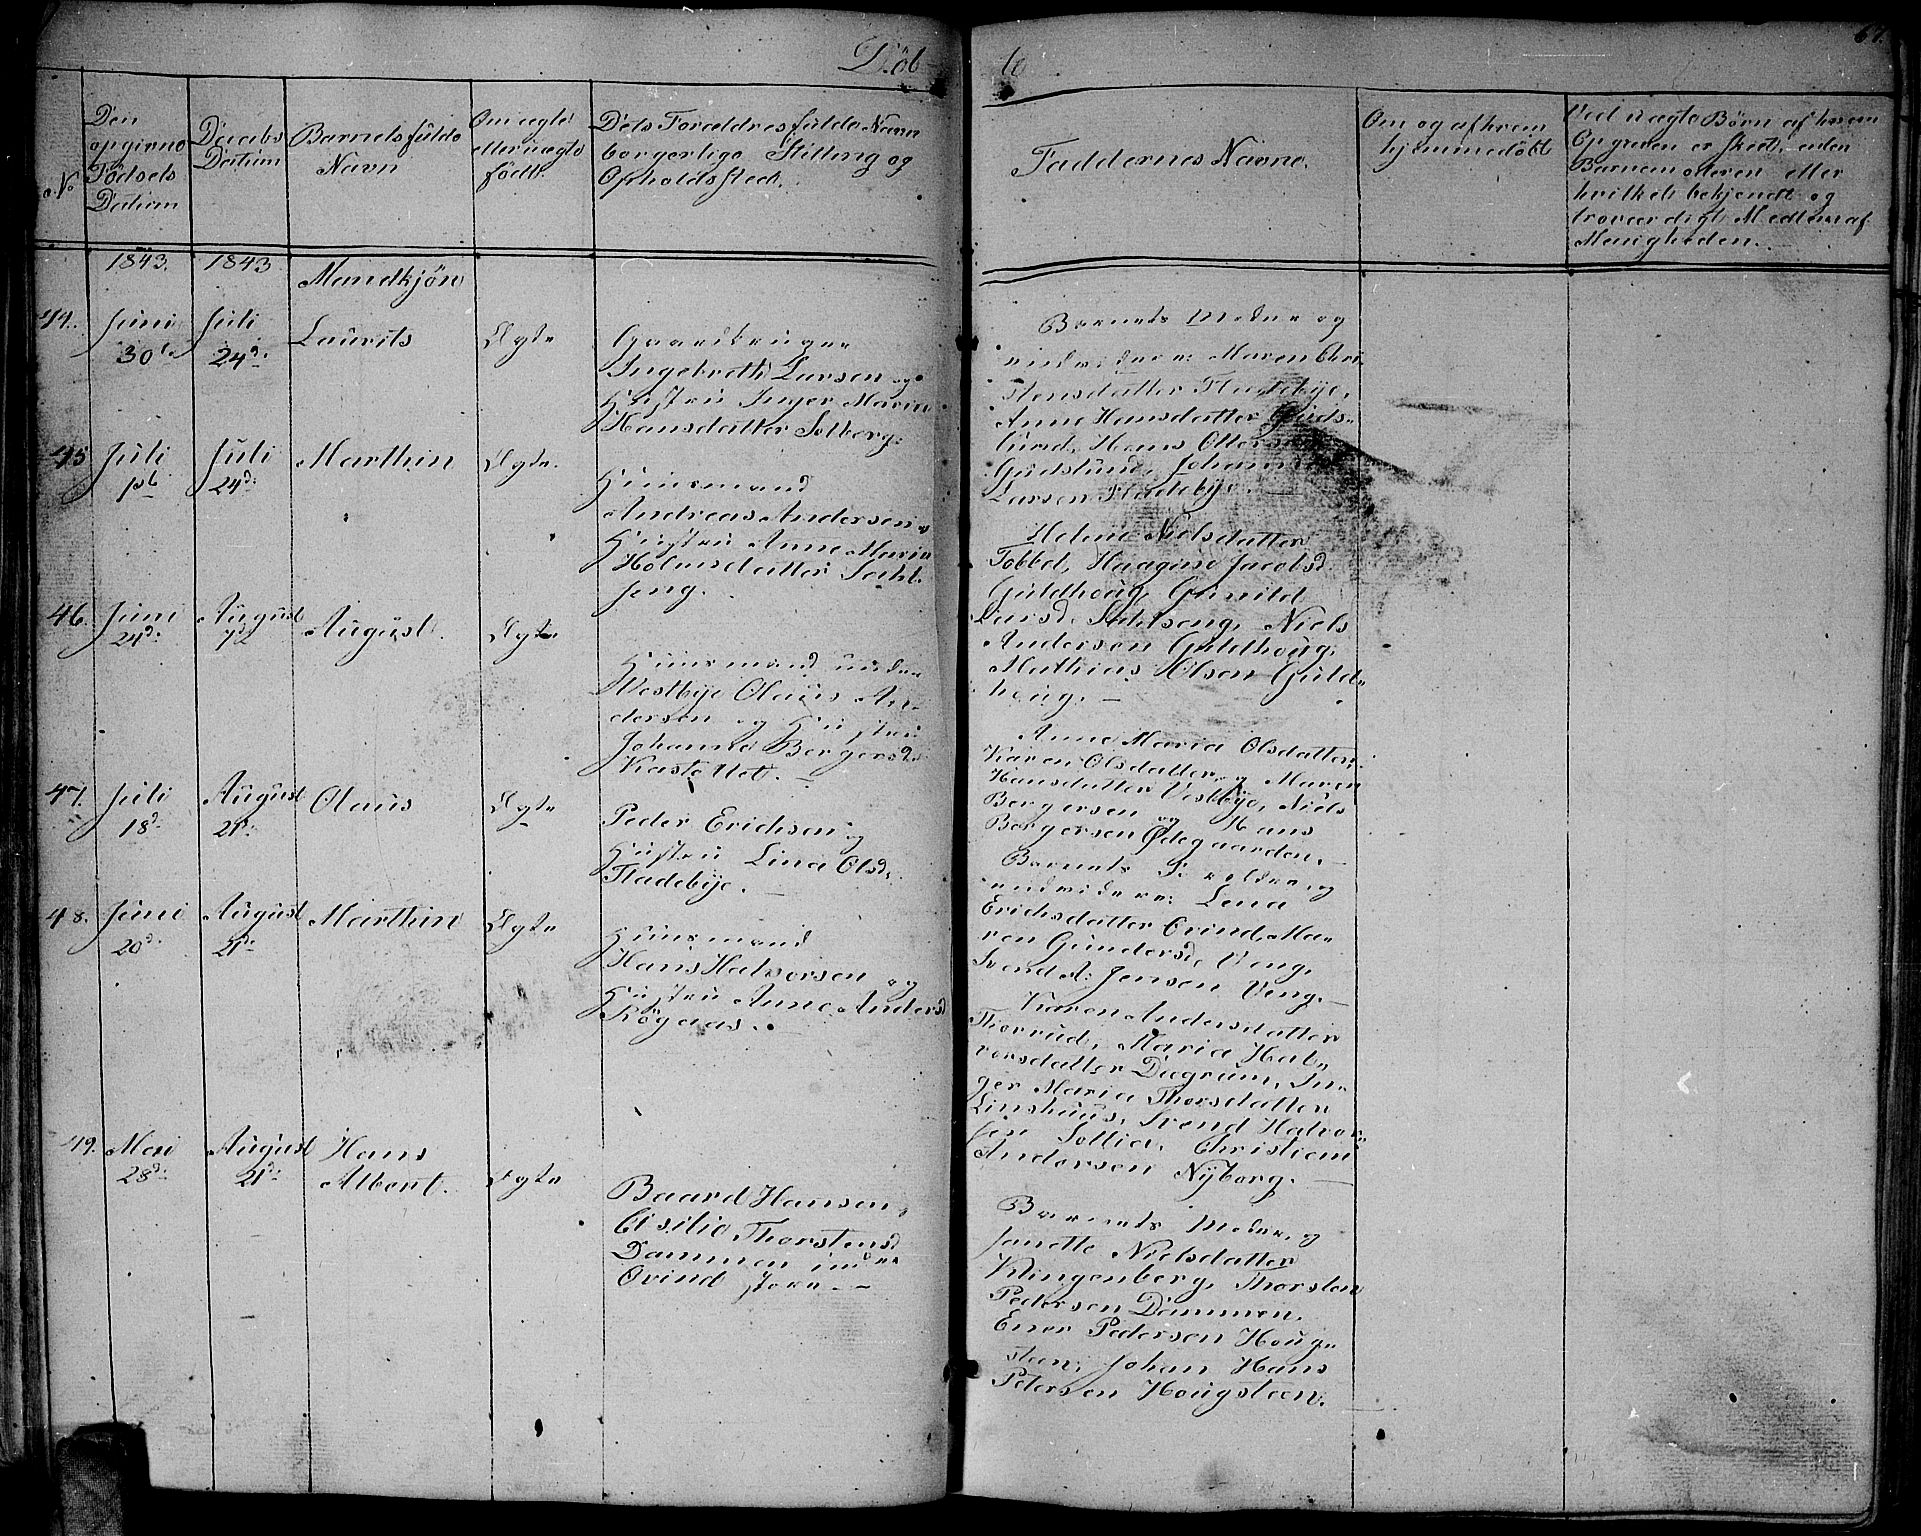 Döb
te
67.
No
Den
opgivne
Födsels
Datum
Daabs
Datum
Barnets fulde
Navn
Om ægte
eller uægte
födt.
Dets Forældres fulde Navn
borgerlige Stilling og
Opholdssted.
Faddernes Navne.
Om og af hvem
hjemmedöbt
Ved uægte Börn af hvem
Opgaven er skeet, enten
Barnemoderen eller
hvilket bekjendt og
troværdigt Medlem af
Menigheden.
1843.
1843
Mandkjön
44.
Juni
30te
Juli
24d:
Laurits
Ægte
Gaardbruger
Ingebreth Larsen og
Hustru Inger Marie
Hansdatter Solberg.
Barnets Moder og
vidre: Maren Chri-
stensdatter Fladebÿe,
Anne Hansdatter Guds-
lund, Hans Ottersen
Gudslund, Johannes
Larsen Fladebÿe. —
45
Juli
1st
Juli
24d:
Marthin
Ægte.
Huusmand
Andreas Andersen og
Hustru Anne Marie
Holmsdatter Sahl-
feng.
Helene Nielsdatter
Tobbel, Haagine Jacobsd.
Guldhoug, Gunild
Larsd. Sahlseng, Niels
Andersen Guldhoug,
Mathias Olsen Guld-
houg. —
46.
Juni
24d:
August
7d
August.
Ægte
Huusmand under
Westbÿe Olaus An-
dersen og Hustru
Johanne Bergersd.
Kastellet. —
Anne Maria Olsdatter,
Karen Olsdatter, og Maren
Hansdatter Vestbÿe, Niels
Bergersen og Hans
Bergersen Ödegaarden. —
47.
Juli
18d:
August
21d:
Olaus
Ægte
Peder Erichsen og
Hustru Lina Olsd.
Fladebÿe. —
Barnets Forældre, og
endvidere: Lena
Erichsdatter Ovind, Ma-
ren Gundersd. Veng,
Svend A: Jensen Veng. —
48.
Juni
20d:
August
21d:
Marthin
Ægte
Huusmand
Hans Halvorsen og
Hustru Anne Andersd
Rögaas. —
Karen Andersdatter
Thorrud, Maria Hal-
vorsdatter Dægrum, In-
ger Maria Thorsdatter
Linshuus, Svend Halvor-
sen Sollia, Christian
Andersen Nÿborg. —
49.
Mai
28d:
August
21d:
Hans
Albert.
Ægte
Baard Hansen,
Cisilia Thorstensd
Dammen under
Ovind store. —
Barnets Moder, og
Janette Nielsdatter
Klingenberg, Thorsten
Pedersen Dammen,
Ener Pedersen Houg-
steen, Johan Hans
Petersen Hougsteen. —